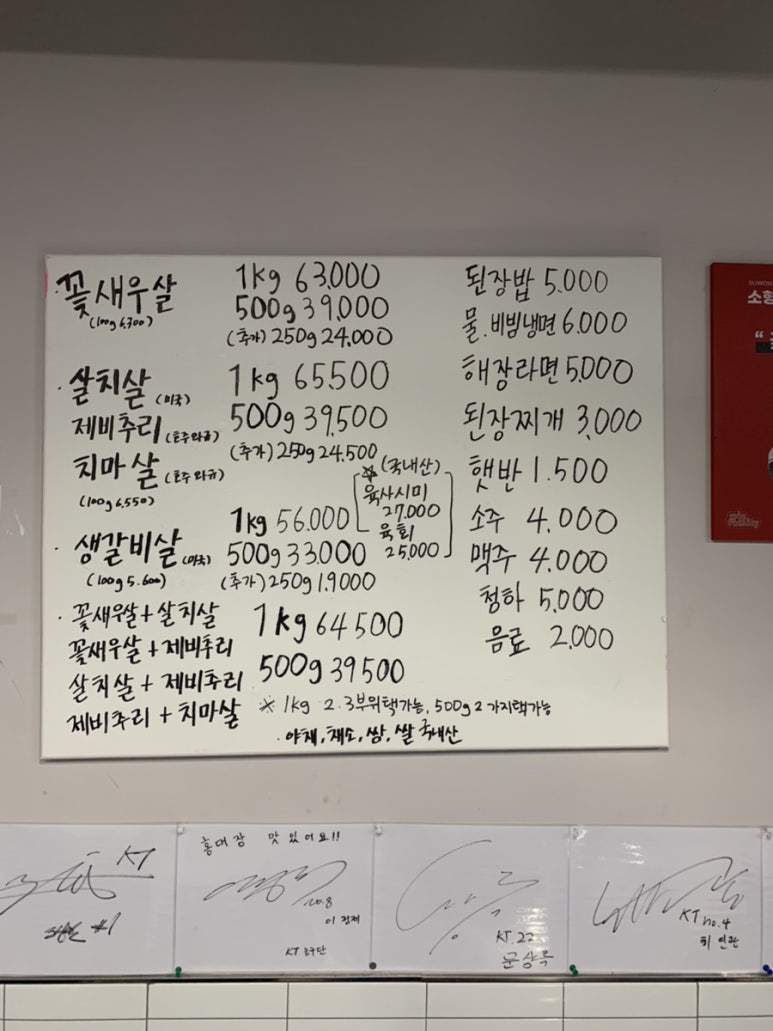 꽃새우살
(100g 6,300)
1kg 63,000
500g 39,000
(추가) 250g 24,000
· 살치살 (미국)
제비추리 (호주와규)
치마살 (호주와규)
(100g 6,550)
1kg 65,500
500g 39,500
(추가) 250g 24,500
(국내산)
육사시미
27,000
육회
25,000
· 생갈비살 (미국)
(100g 5,600)
1kg 56,000
500g 33,000
(추가) 250g 1,9000
· 꽃새우살 + 살치살
꽃새우살 + 제비추리
살치살 + 제비추리
제비추리 + 치마살
1kg 64,500
500g 39,500
※ 1kg 2.3부위택가능, 500g 2가지택가능
· 야채, 채소, 쌈, 쌀 국내산
된장밥 5,000
물.비빔냉면 6,000
해장라면 5,000
된장찌개 3,000
햇반 1,500
소주 4,000
맥주 4,000
청하 5,000
음료 2,000
SUWON
소형
KT
#1
홍대장 맛있어요!!
no.8
KT 농구단
KT.22
문상옥
KT no.4